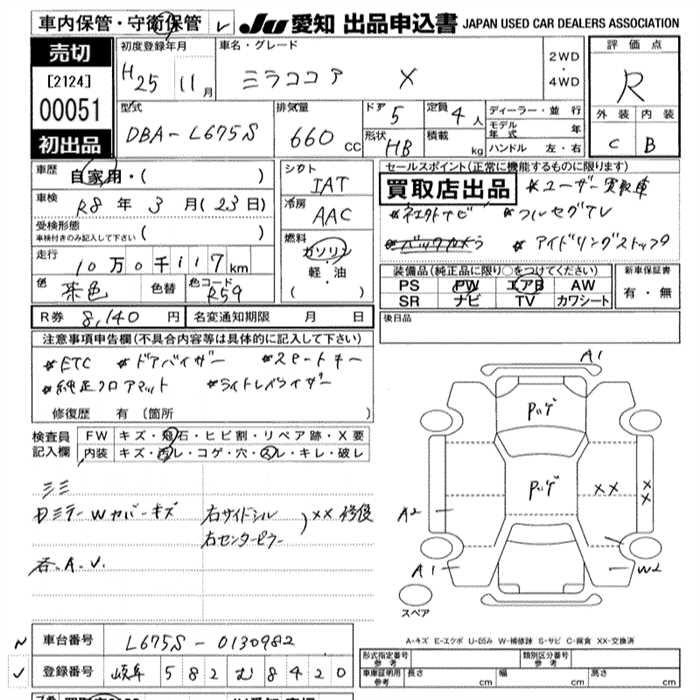 車内保管・守衛保管 レ JU 愛知 出品申込書 JAPAN USED CAR DEALERS ASSOCIATION
売切 [2124] 00051 初出品
初度登録年月 H25 11月
車名・グレード ミラココア X
2WD・4WD
評価点 R
外装 内装
C B
型式 DBA-L675S
排気量 660 CC
ドア 5
定員 4人
形状 HB
積載 kg
ディーラー・並行
モデル年式 年
ハンドル 左・右
車歴 自家用・( )
車検 R8年3月(23日)
受検形態
車検付きのみ記入して下さい ( )
走行 10万0千117km
色 茶色 色替 色コード R59
R券 8,140円 名変通知期限 月 日
シフト IAT
冷房 AAC
燃料 ガソリン・軽・油・( )
セールスポイント(正常に機能するものに限ります)
買取店出品 *ユーザー買取車
*ネエクトナビ *フルセグTV
*バックカメラ *アイドリングストップ
装備品(純正品に限り○をつけてください)
PS PW エアB AW
SR ナビ TV カワシート
新車保証書
有・無
後日品
注意事項申告欄(不具合内容等は具体的に記入して下さい)
*ETC *ドアバイザー *スマートキー
*純正フロアマット *ライトレベライザー
修復歴 有(箇所
検査員記入欄
FW キズ・飛石・ヒビ割・リペア跡・X要
内装 キズ・汚レ・コゲ・穴・スレ・キレ・破レ
ミミ
ミラーWカバーキズ
右サイドシル
右センターピラー
)XX 修復
各.A.U.
A1
Pハゲ
Pハゲ
XX
XX
A2
A1
W2
スペア
A-キズ E-エクボ U-凹み W-補修跡 S-サビ C-腐食 XX-交換済
車台番号 L675S-0130982
登録番号 岐阜 582 む 8420
型式指定番号 参考
類別区分番号 参考
車庫証明用 参考 長さ cm 幅 cm 高さ cm